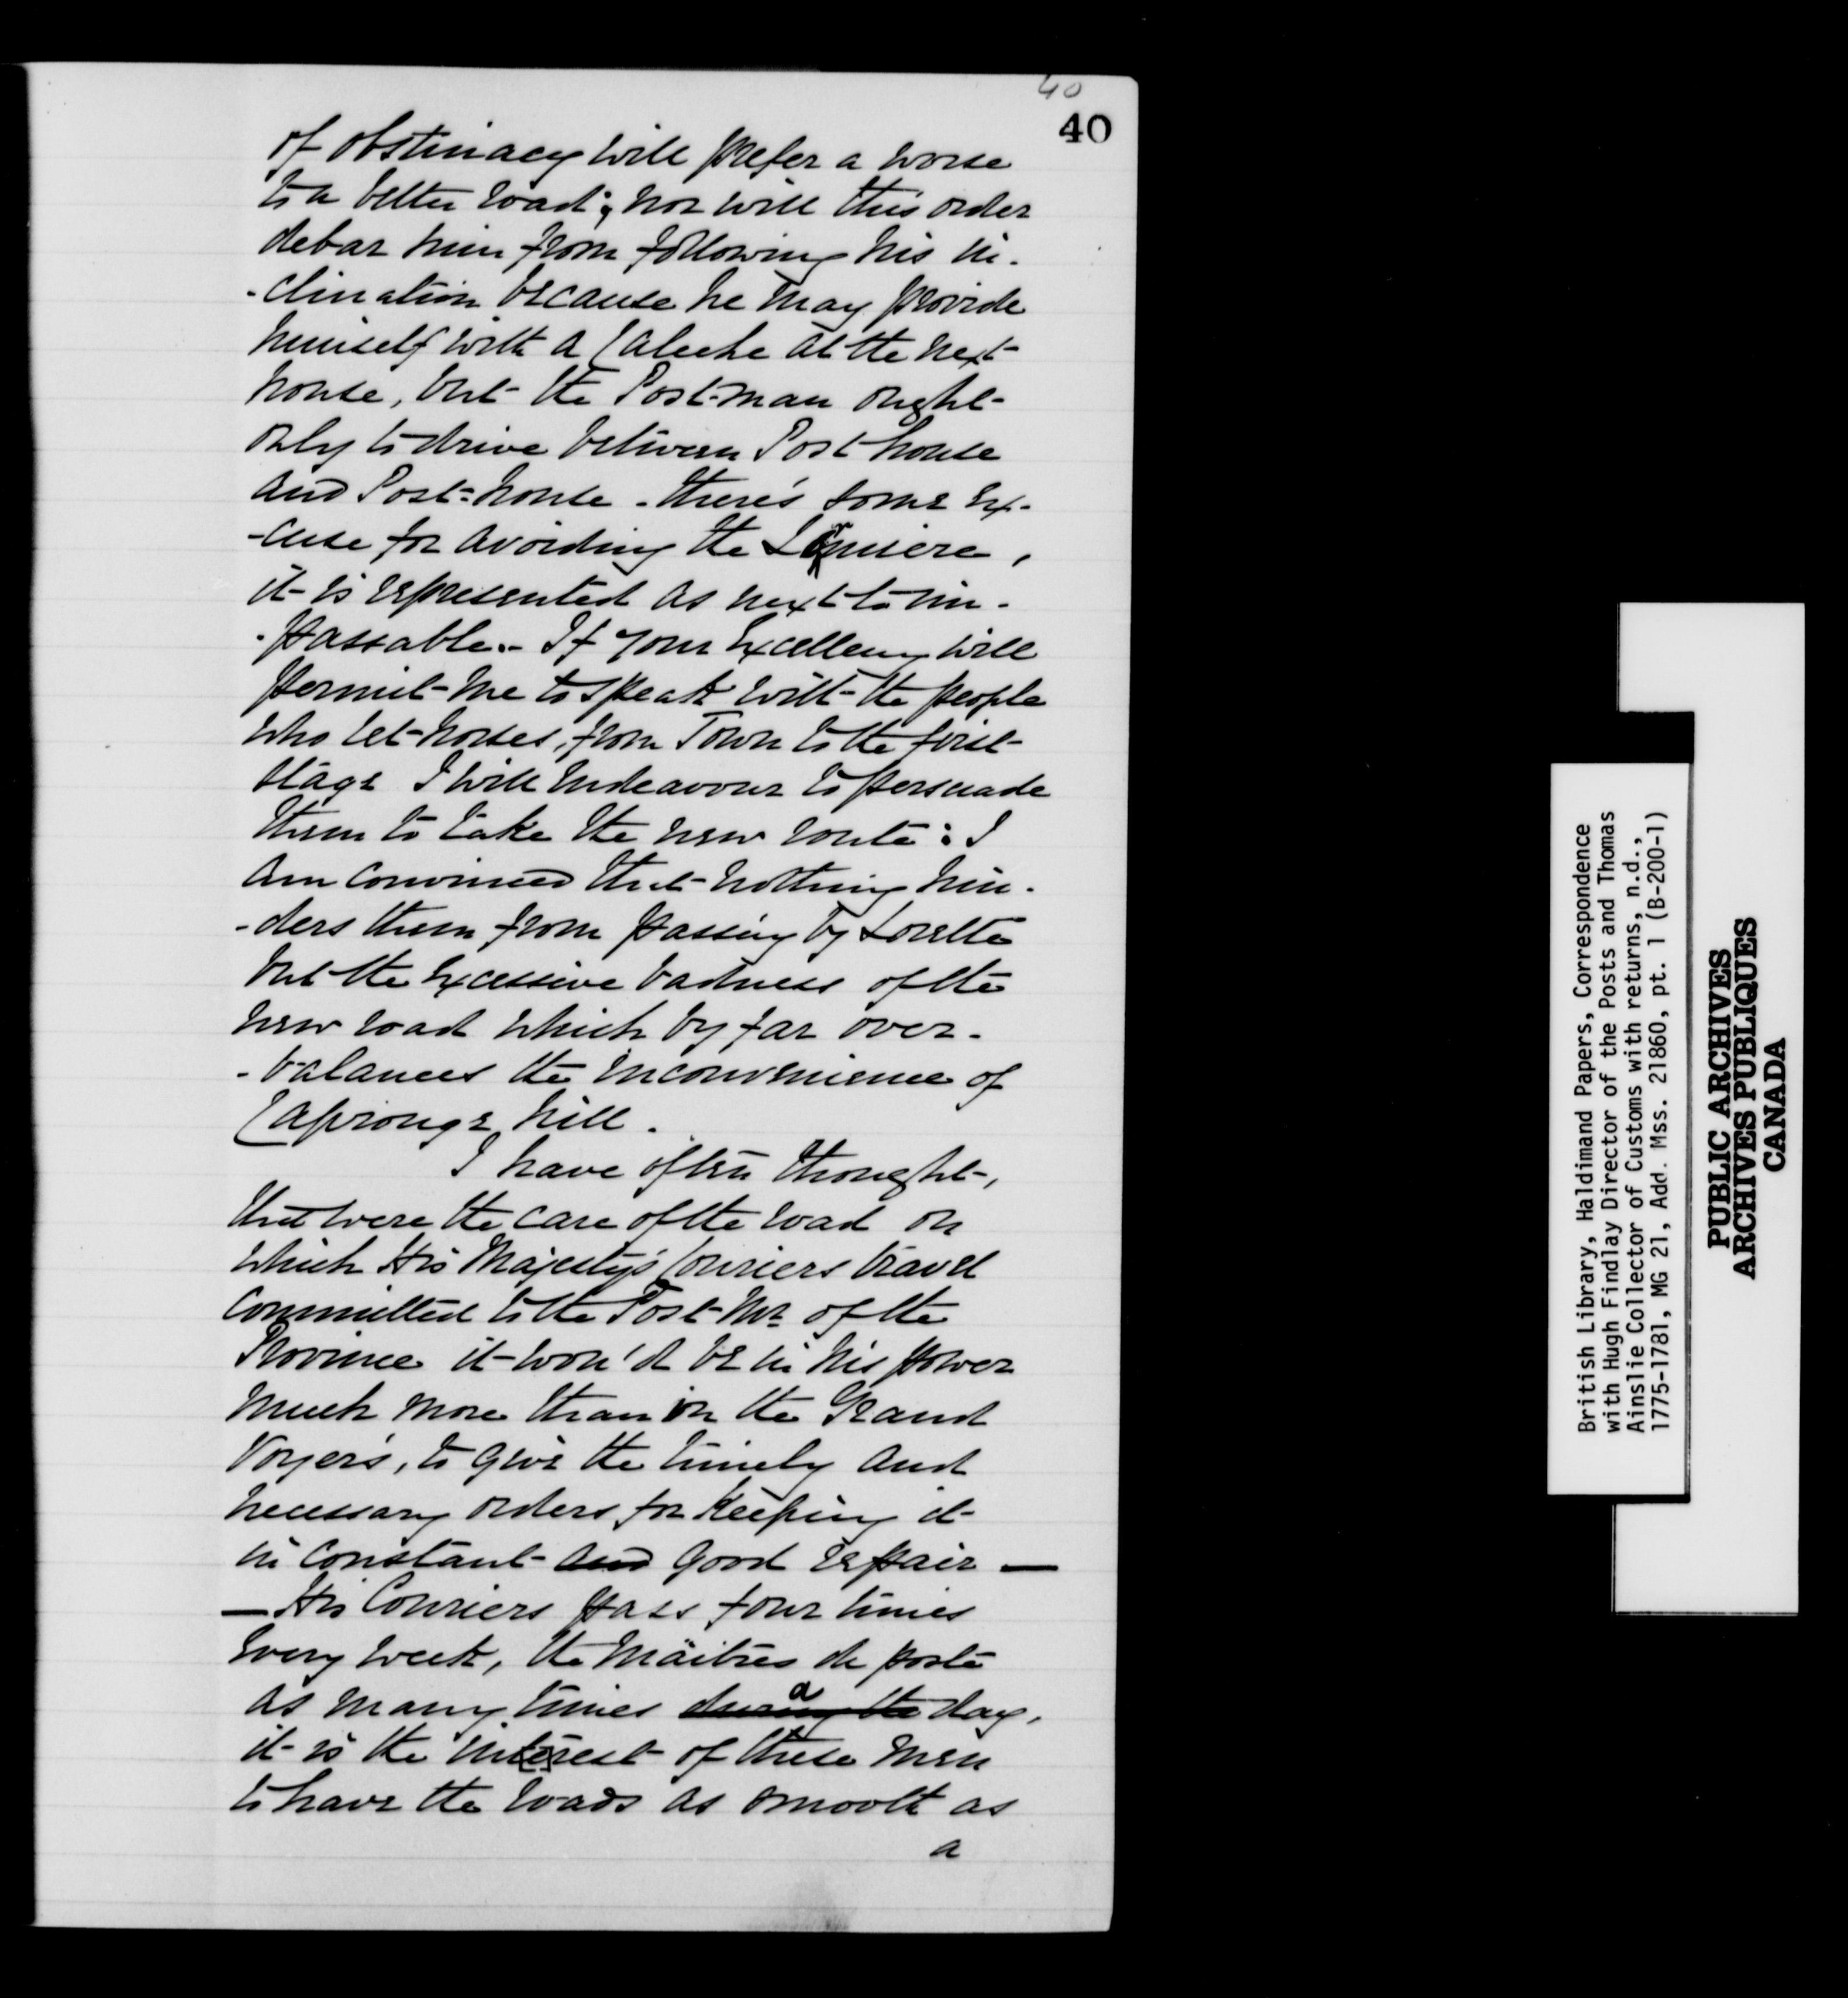 40
40
of obstinacy will prefer a worse
to a better road; nor will this order
debar him from following his in-
-clination because he may provide
himself with a Caleche at the next
house, but the Post-man ought
only to drive between Post house
and Post-house - there's some ex-
-cuse for avoiding the ,
it is represented as next to im-
-passable. - If your Excellency will
permit me to speak with the people
who let horses, from Town to the first
stage I will endeavour to persuade
them to take the new route: I
am convinced that nothing hin-
-ders them from passing by Lorette
but the excessive badness of the
new road which by far over-
-balances the inconvenience of
Caprouge hill.
I have often thought,
that were the care of the road on
which His Majesty's Couriers travel
committed to the Post-Mr. of the
Province it wou'd be in his power
much more than in the Grand
Voyer's, to give the timely and
necessary orders for keeping it
in constant and good repair —
— His Couriers pass four times
every week, the Maitres de poste
as many times during the a day,
it is the interest of these men
to have the roads as smooth as
a
British Library, Haldimand Papers, Correspondence
with Hugh Findlay Director of the Posts and Thomas
Ainslie Collector of Customs with returns, n.d.,
1775-1781, MG 21, Add. Mss. 21860, pt. 1 (B-200-1)
PUBLIC ARCHIVES
ARCHIVES PUBLIQUES
CANADA